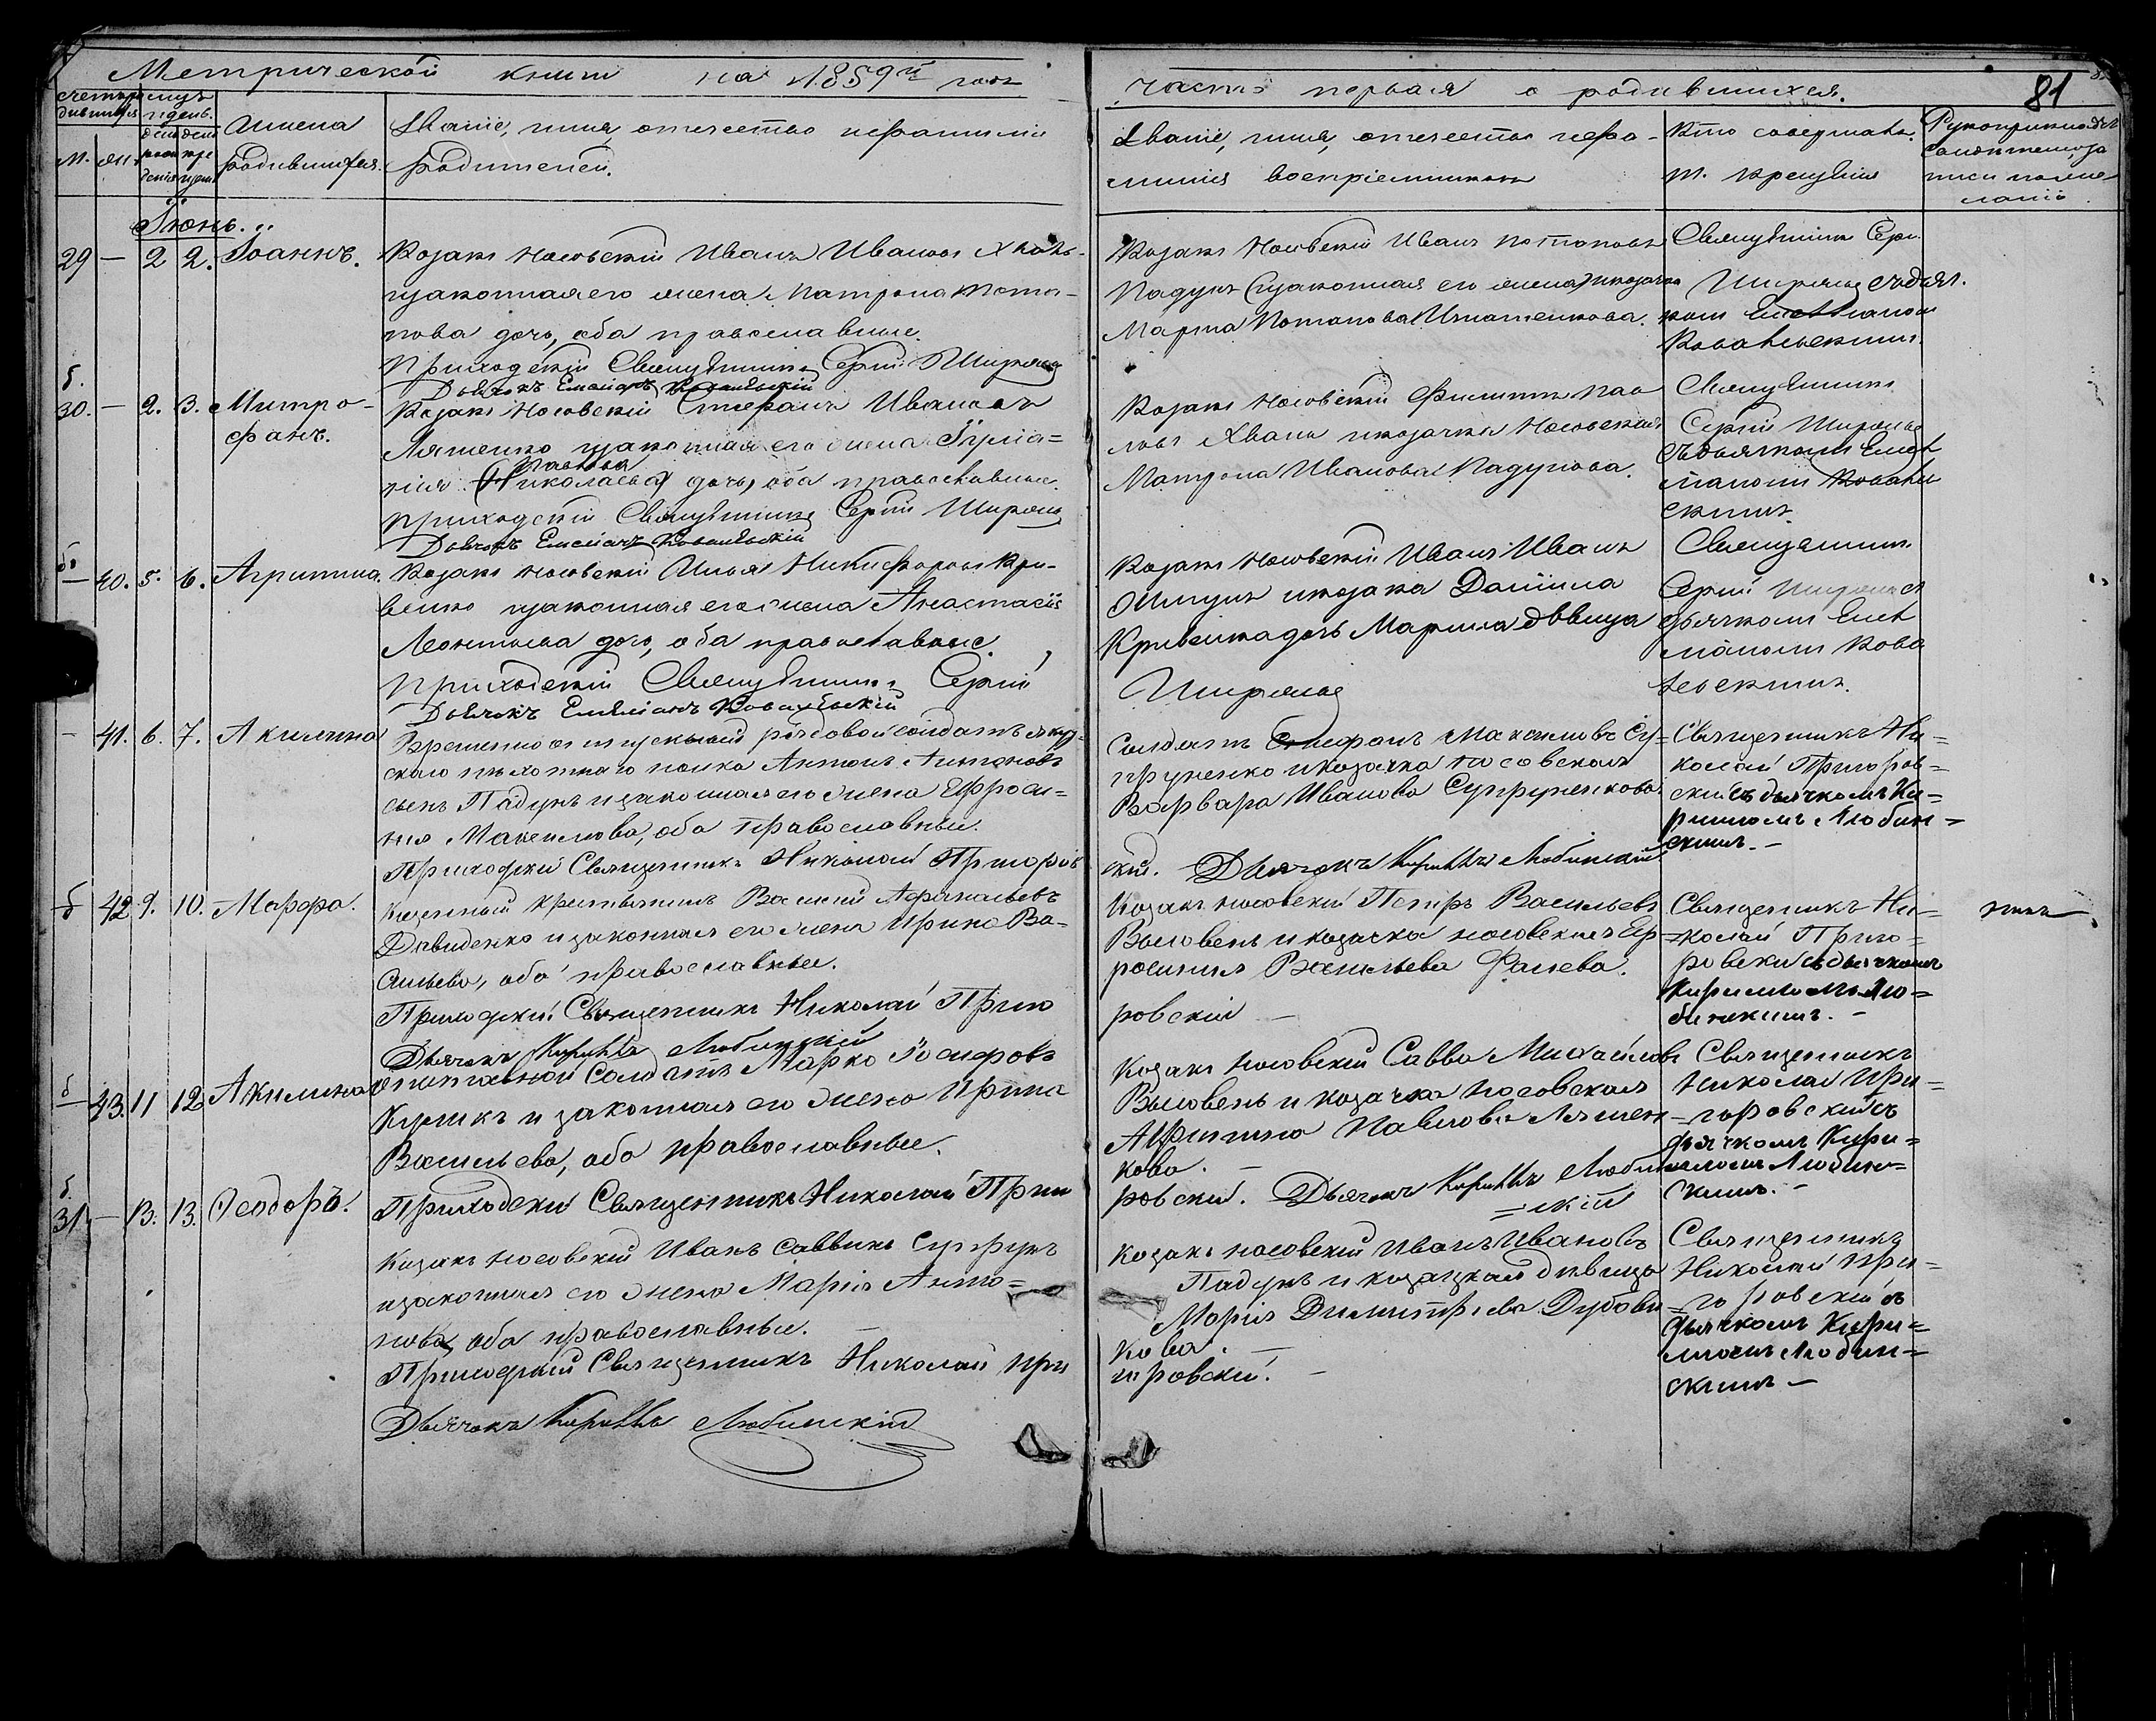 Метрической книги на 1859й годъ
часть первая о родившихся.
81
Имена родившихся.
Званіе, имя, отечество и фамилія родителей.
Званіе, имя, отечество и фа-
милія воспріемниковъ
Кто совершалъ
т. крещенія
М.
Іюнь.
29 — 2 2. Іоаннъ.
Козакъ Носовскій Иванъ Ивановъ
изаконная его жена Матрона Пота-
пова дочь, оба православные.
Приходскій Священникъ Сергій Ширяевъ
Дьячокъ Емеліанъ Ковалевскій
Козакъ Носовскій Иванъ Потаповъ
Падунъ
Марѳа Потапова
Священникъ Серг.
Ширяевъ съ дьяч.
комъ Емеліаномъ
Ковалевскимъ.
30. — 2. 3. Митро-
фанъ.
Козакъ Носовскій Стефанъ Ивановъ
Ляшенко изаконная его жена
Николаева дочь, оба православные.
Приходскій Священникъ Сергій Ширяевъ
Дьячокъ Емеліанъ Ковалевскій
Козакъ Носовскій Филиппъ Пав
ловъ Хвань икозачка Носовская
Матрона Иванова Падунова.
Священникъ
Сергій Ширяевъ
съ дьячкомъ Емел
іаномъ Ковалев
скимъ.
— 40. 5. 6. Агрипина
Козакъ Носовскій Илья Никифоровъ Кри-
венко изаконная его жена Анастасія
Леонтьева дочь, оба православные.
Приходскій Священникъ Сергій
Дьячокъ Емеліанъ Ковалевскій
Козакъ Носовскій Иванъ Ивановъ
икозака Даніила
Кривенка дочь Марина дѣвица
Ширяевъ
Священникъ
Сергій Ширяевъ съ
дьячкомъ Емел
іаномъ Кова
левскимъ.
— 41. 6. 7. Акилина
Временно отпускный рядовой солдатъ
скаго пѣхотнаго полка Антонъ Антоновъ
сынъ Падунъ и законная его жена Ефроси-
нія Максимова, оба православные.
Приходскій Священникъ Николай Пригоров
Солдатъ Стефанъ Максимовъ Су-
пруненко и козачка носовская
Варвара Иванова Супруненкова
скій. Дьячокъ Кириллъ Любинскій
Священникъ Ни-
колай Пригоров-
скій съ дьячкомъ Ки-
рилломъ Любин-
скимъ. —
42 9. 10. Марфа.
Казенный крестьянинъ Василій Афанасьевъ
Давиденко и законная его жена Ирина Ва-
сильева, оба православные.
Приходскій Священникъ Николай Приго
Дьячокъ Кириллъ Любинскій
Козакъ носовскій Петръ Васильевъ
Выловень и козачка носовская Еф-
росинія Васильева
ровскій —
Священникъ Ни-
колай Приго-
ровскій съ дьячкомъ
Кирилломъ Лю-
бинскимъ. —
43. 11 12 Акилина
Солдатъ Марко Іосифовъ
и законная его жена Ирина
Васильева, оба православные.
Приходскій Священникъ Николай Приго
Козакъ носовскій Савва Михайловъ
Выловень и козачка носовская
Агрипина Павлова Ляшен-
кова. —
ровскій. Дьячокъ Кириллъ Любин
=скій
Священникъ
Николай При-
горовскій съ
дьячкомъ Кири-
ломъ Любин-
скимъ. —
31. — 13. 13. Ѳеодоръ.
Козакъ носовскій Иванъ Саввинъ Супрунъ
изаконная его жена Марія Анто-
нова, оба православные. —
Приходскій Священникъ Николай При
Дьячокъ Кириллъ Любинскій
Козакъ носовскій Иванъ Ивановъ
Падунъ и козацкая дѣвица
Марія Димитріева Дубови-
кова. —
горовскій. —
Священникъ
Николай При-
горовскій съ
дьячкомъ Кири-
ломъ Любин-
скимъ —